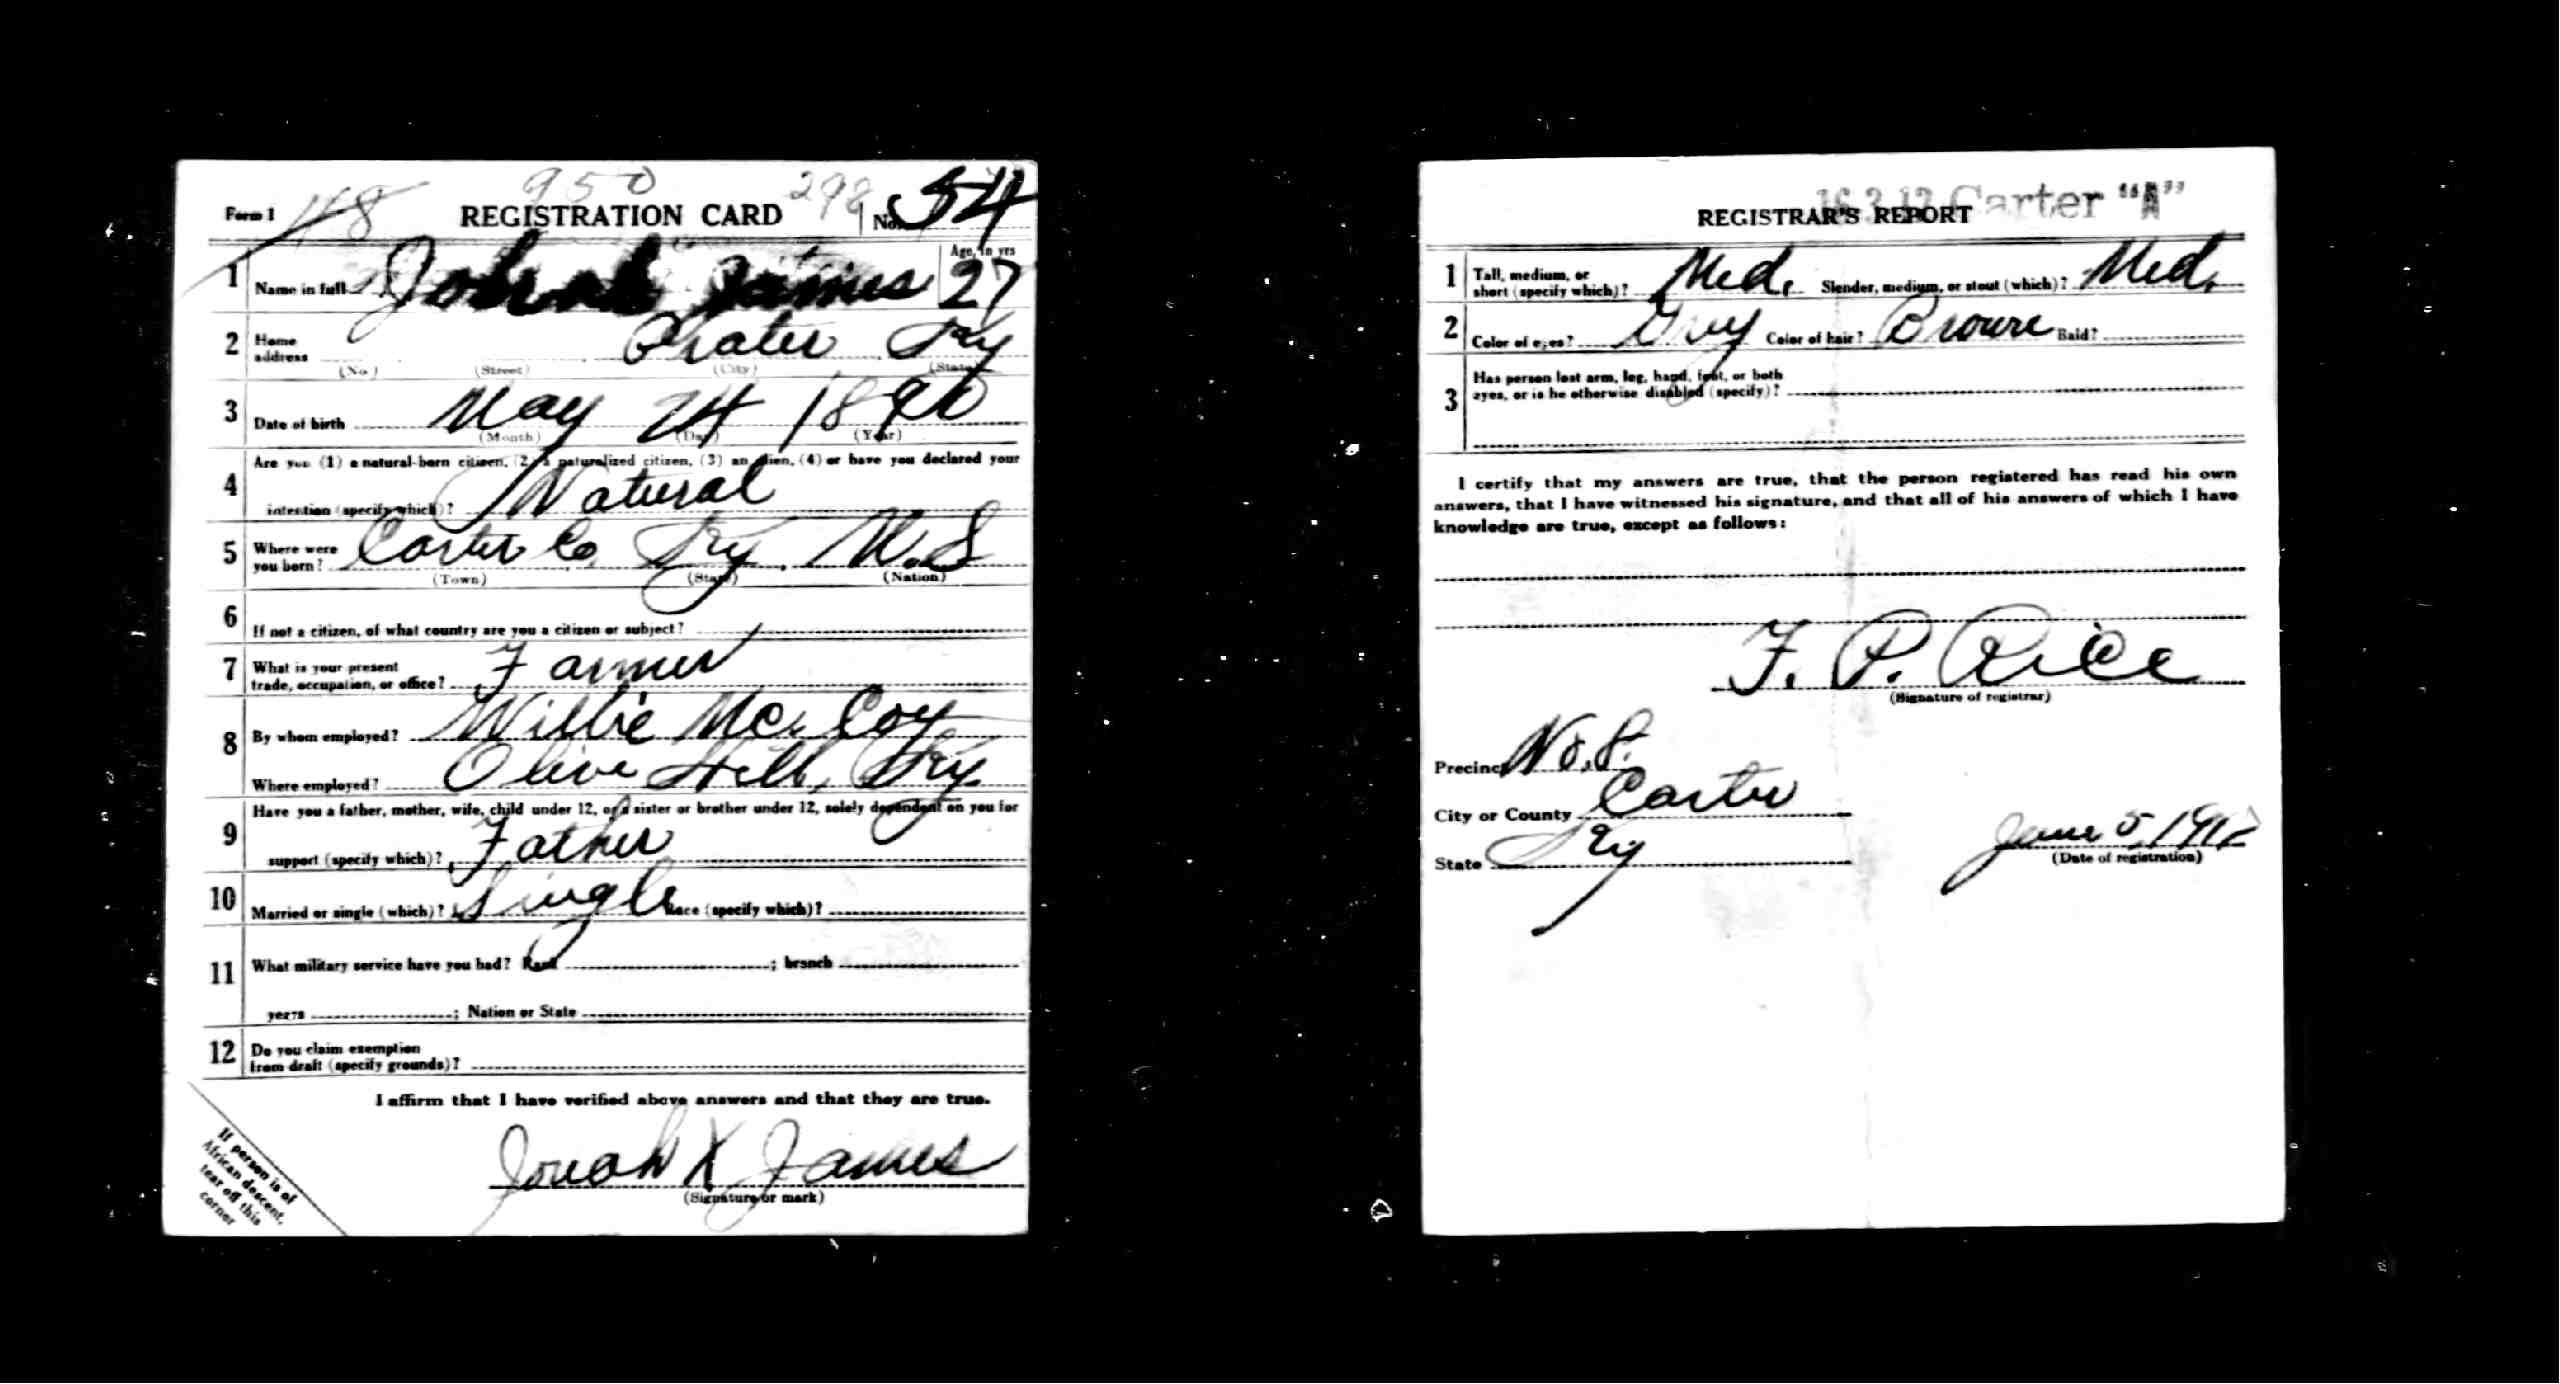 Form 1 118 950 298
REGISTRATION CARD No. 54
1 Name in full James Age, in yrs 27
2 Home address Prater Ky
(No.) (Street) (City) (State)
3 Date of birth May 24 1890
(Month) (Day) (Year)
4 Are you (1) a natural-born citizen, (2) a naturalized citizen, (3) an alien, (4) or have you declared your
intention (specify which)? Natural
5 Where were you born? Carter Co. Ky. U.S
(Town) (State) (Nation)
6 If not a citizen, of what country are you a citizen or subject?
7 What is your present trade, occupation, or office? Farmer
8 By whom employed? Willie Mc. Coy
Where employed? Olive Hill, Ky.
9 Have you a father, mother, wife, child under 12, or a sister or brother under 12, solely dependent on you for
support (specify which)? Father
10 Married or single (which)? Single Race (specify which)?
11 What military service have you had? Rank ; branch
years ; Nation or State
12 Do you claim exemption
from draft (specify grounds)?
I affirm that I have verified above answers and that they are true.
X James
(Signature or mark)
If person is of
African descent,
tear off this
corner
16 3 12 Carter "A"
REGISTRAR'S REPORT
1 Tall, medium, or short (specify which)? Med. Slender, medium, or stout (which)? Med.
2 Color of eyes? Color of hair? Brown Bald?
3 Has person lost arm, leg, hand, foot, or both
eyes, or is he otherwise disabled (specify)?
I certify that my answers are true, that the person registered has read his own
answers, that I have witnessed his signature, and that all of his answers of which I have
knowledge are true, except as follows:
F. P. Rice
(Signature of registrar)
Precinct No. 8.
City or County Carter
State Ky
June 5, 1917
(Date of registration)